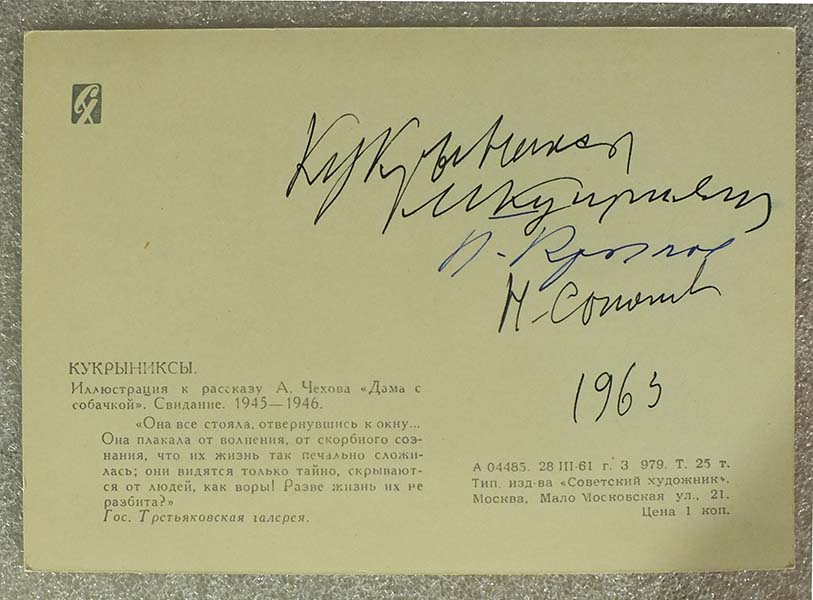 Кукрыниксы
М Куприянов
П. Крылов
Н. Соколов
1963
КУКРЫНИКСЫ.
Иллюстрация к рассказу А. Чехова «Дама с
собачкой». Свидание. 1945—1946.
«Она все стояла, отвернувшись к окну...
Она плакала от волнения, от скорбного соз-
нания, что их жизнь так печально сложи-
лась; они видятся только тайно, скрывают-
ся от людей, как воры! Разве жизнь их не
разбита?»
Гос. Третьяковская галерея.
А 04485. 28 III-61 г. З 979. Т. 25 т.
Тип. изд-ва «Советский художник».
Москва, Мало Московская ул., 21.
Цена 1 коп.